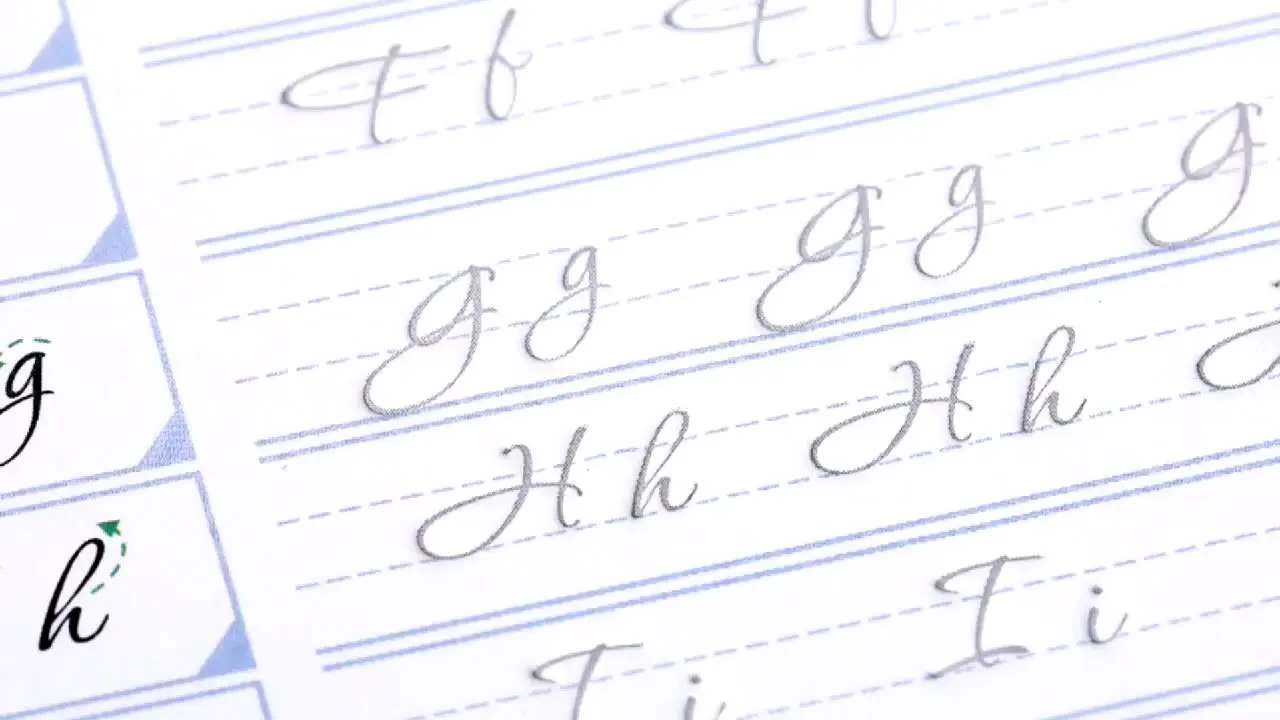 F f F f
g G g G g G
h H h H h H
I i I i